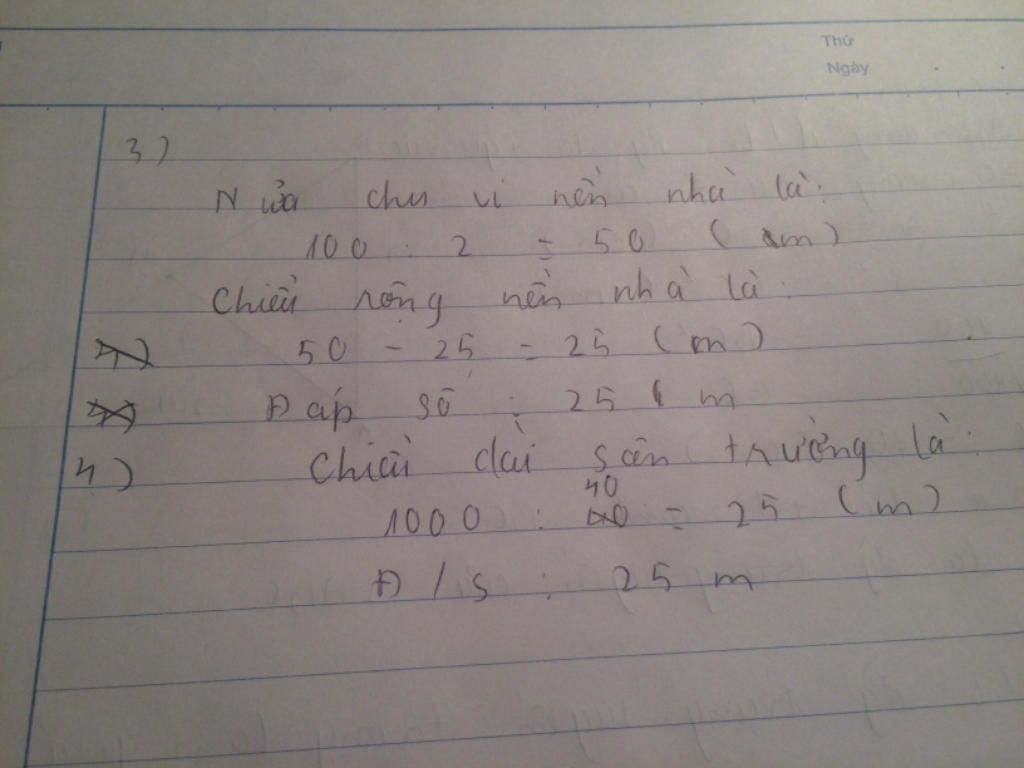 Thứ
Ngày
3)
Nửa chu vi nền nhà là:
100 : 2 = 50 (m)
Chiều rộng nền nhà là:
50 - 25 = 25 (m)
Đáp số : 25 m
4) Chiều dài sân trường là:
40
1000 : = 25 (m)
Đ/s : 25 m